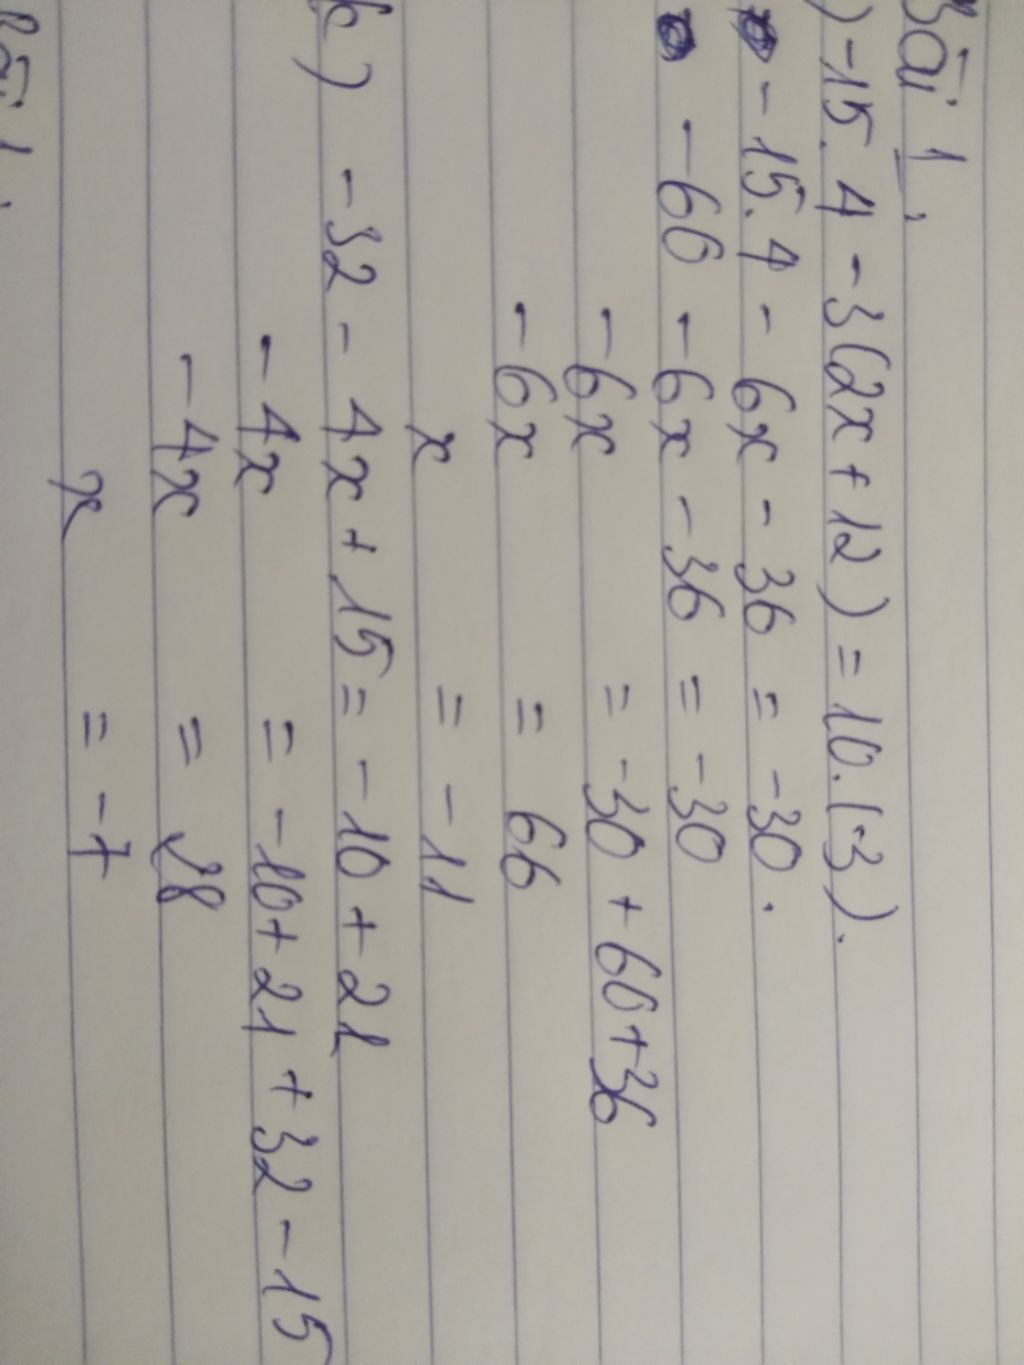 Bài 1,
) -15. 4 - 3(2x + 12) = 10. (-3).
- 15. 4 - 6x - 36 = -30.
- 60 - 6x - 36 = -30
- 6x = -30 + 60 + 36
- 6x = 66
x = -11
k) -32 - 4x + 15 = -10 + 21
- 4x = -10 + 21 + 32 - 15
- 4x = 28
x = -7